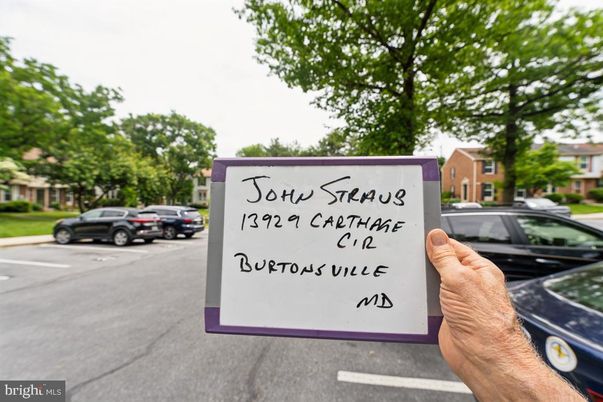 John Straub
13929 Carthage
Cir
Burtonsville
MD
bright MLS